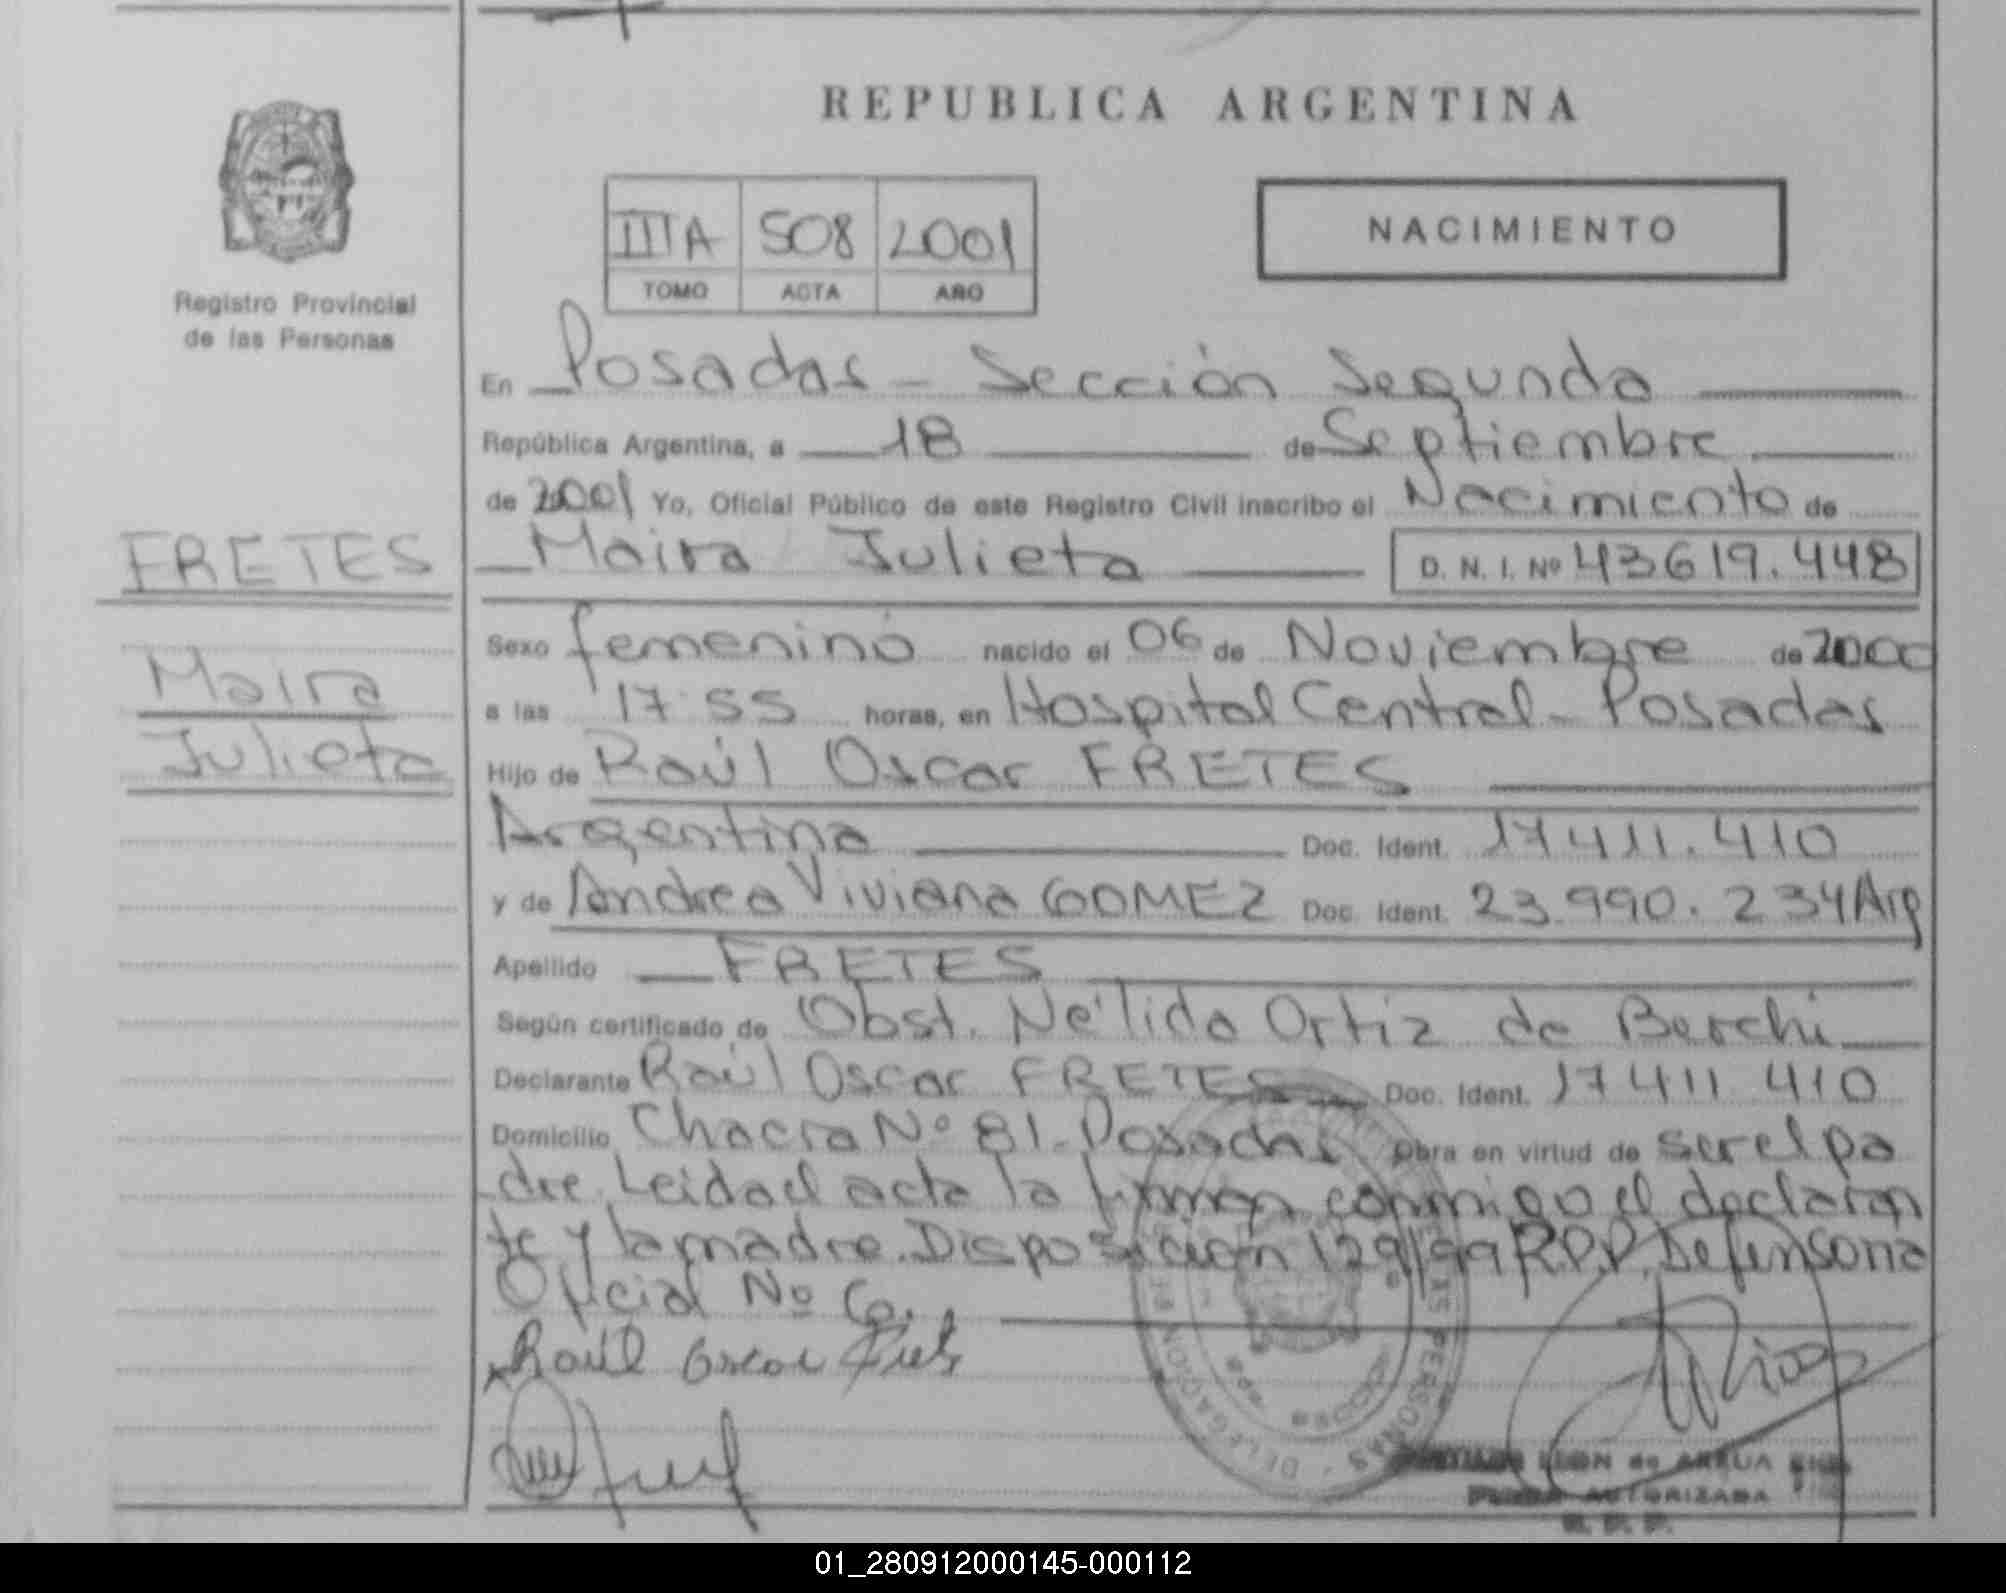 REPUBLICA ARGENTINA
Registro Provincial
de las Personas
IIIA 508 2001
TOMO ACTA AÑO
NACIMIENTO
En Posadas - Sección Segunda
República Argentina, a 18 de Septiembre
de 2001 Yo, Oficial Público de este Registro Civil inscribo el Nacimiento de
FRETES
Maira Julieta D. N. I. Nº 43619.448
Maira
Julieta
Sexo femenino nacido el 06 de Noviembre de 2000
a las 17:55 horas, en Hospital Central - Posadas
Hijo de Raúl Oscar FRETES
Argentina Doc. Ident. 17411.410
y de Andrea Viviana GOMEZ Doc. Ident. 23.990.234 Arg
Apellido FRETES
Según certificado de Obst. Nélida Ortiz de Berchi
Declarante Raúl Oscar FRETES Doc. Ident. 17411410
Domicilio Chacra Nº 81 - Posadas Obra en virtud de ser el pa
dre. Leida el acta la firman conmigo el declaran
te y la madre. Disposición 129/99 R.P.P. Defensoria
Oficial Nº 6.
Raúl Oscar
LEON de ARRUA
AUTORIZADA
R. P. P.
PERSONAS - DELEGACION
01_280912000145-000112